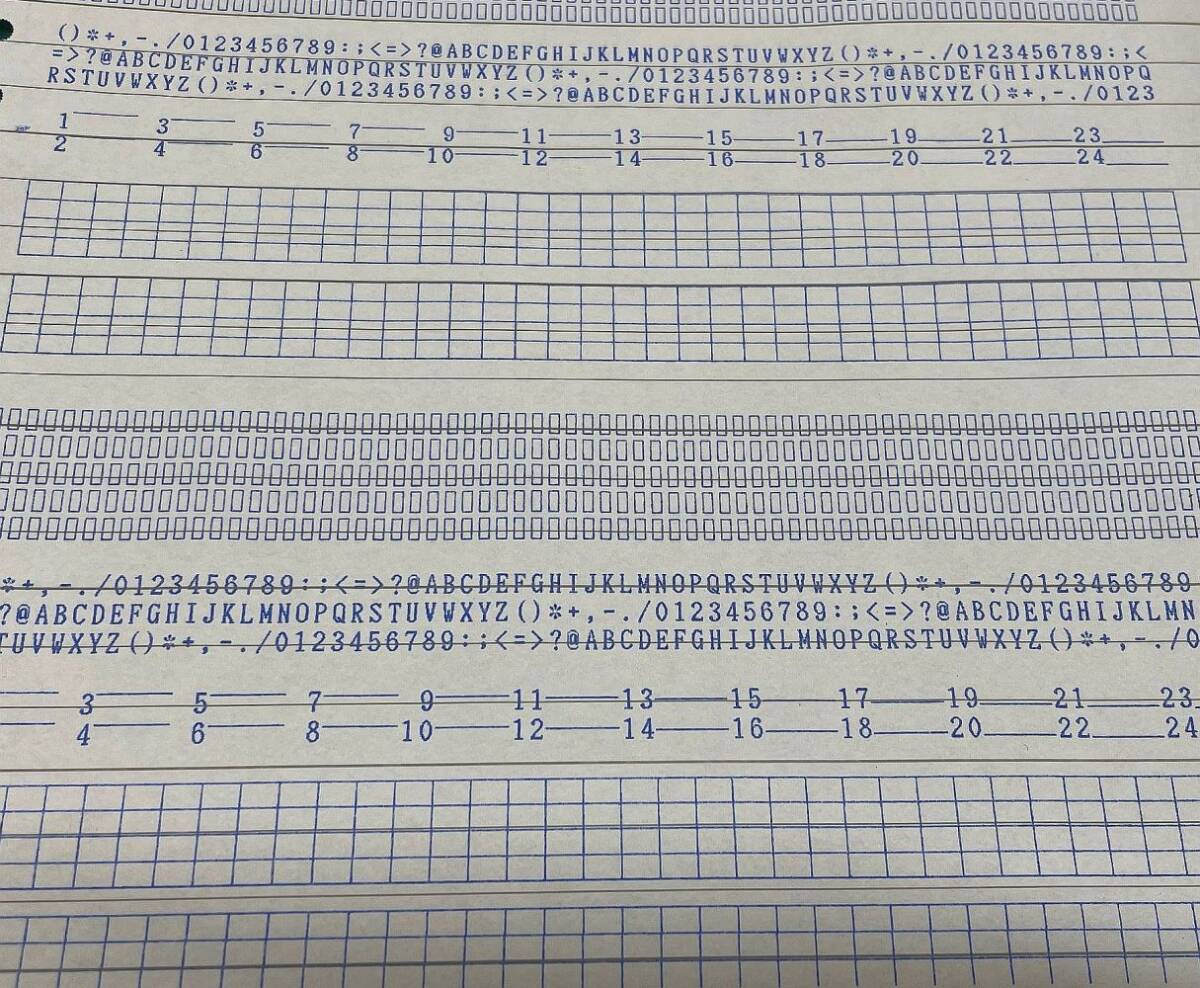 ()*+,-./0123456789:;<=>?@ABCDEFGHIJKLMNOPQRSTUVWXYZ()*+,-./0123456789:;<
=>?@ABCDEFGHIJKLMNOPQRSTUVWXYZ()*+,-./0123456789:;<=>?@ABCDEFGHIJKLMNOPQ
RSTUVWXYZ()*+,-./0123456789:;<=>?@ABCDEFGHIJKLMNOPQRSTUVWXYZ()*+,-./0123
1 3 5 7 9 11 13 15 17 19 21 23
2 4 6 8 10 12 14 16 18 20 22 24
*+,-./0123456789:;<=>?@ABCDEFGHIJKLMNOPQRSTUVWXYZ()*+,-./0123456789
?@ABCDEFGHIJKLMNOPQRSTUVWXYZ()*+,-./0123456789:;<=>?@ABCDEFGHIJKLMN
TUVWXYZ()*+,-./0123456789:;<=>?@ABCDEFGHIJKLMNOPQRSTUVWXYZ()*+,-./0
3 5 7 9 11 13 15 17 19 21 23
4 6 8 10 12 14 16 18 20 22 24